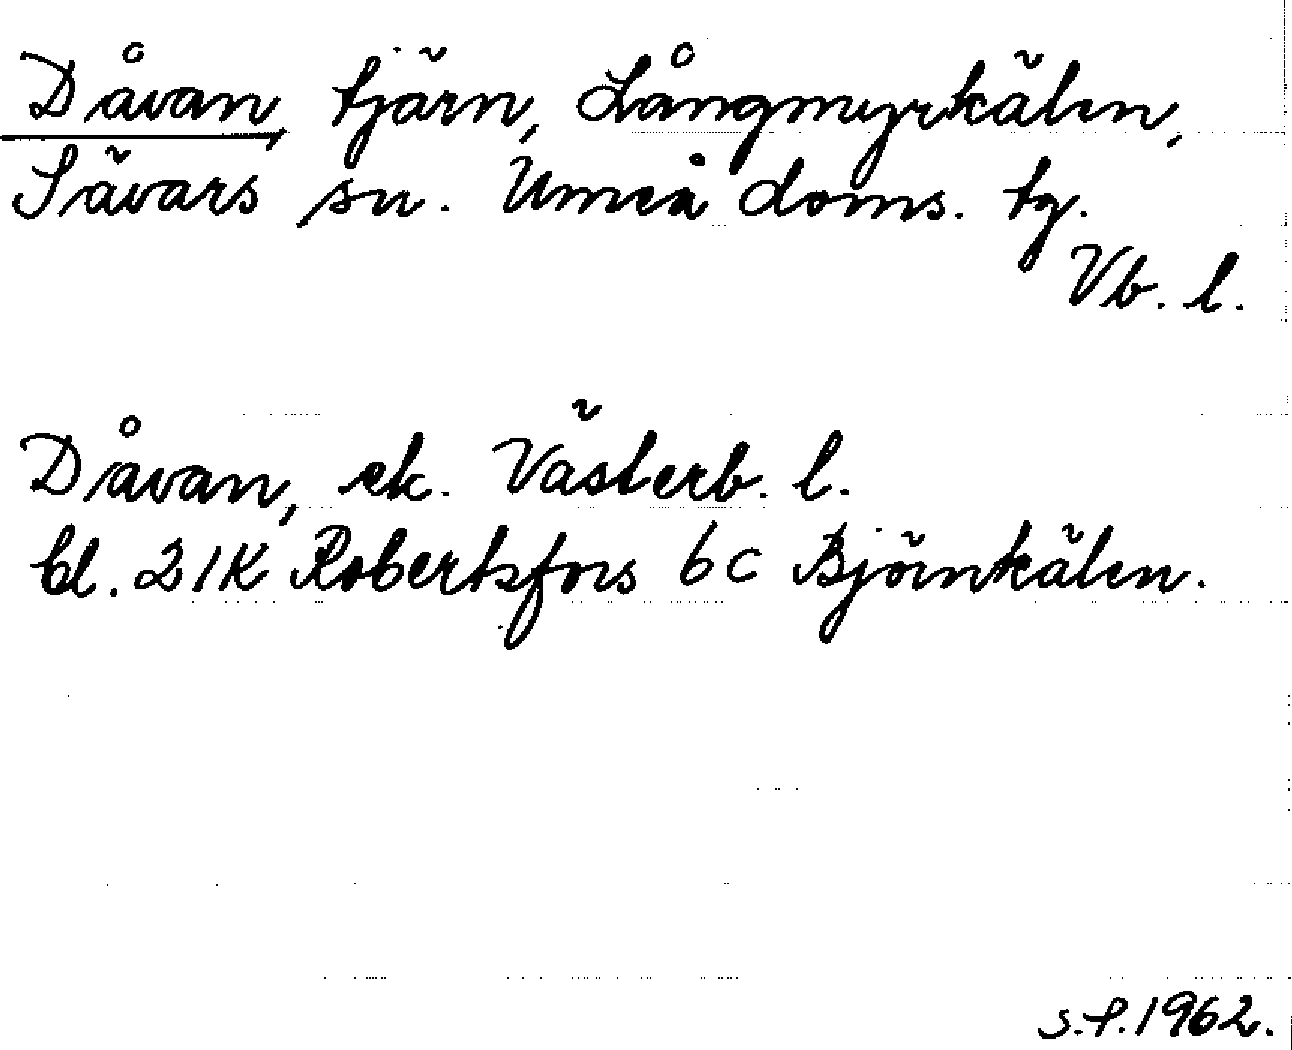 Dåvan, tjärn, Långmyrkälen,
Sävars sn. Umeå doms. tg.
Vb. l.
Dåvan, ek. Västerb. l.
bl. 21K Robertsfors 6c Björnkälen.
S.P. 1962.